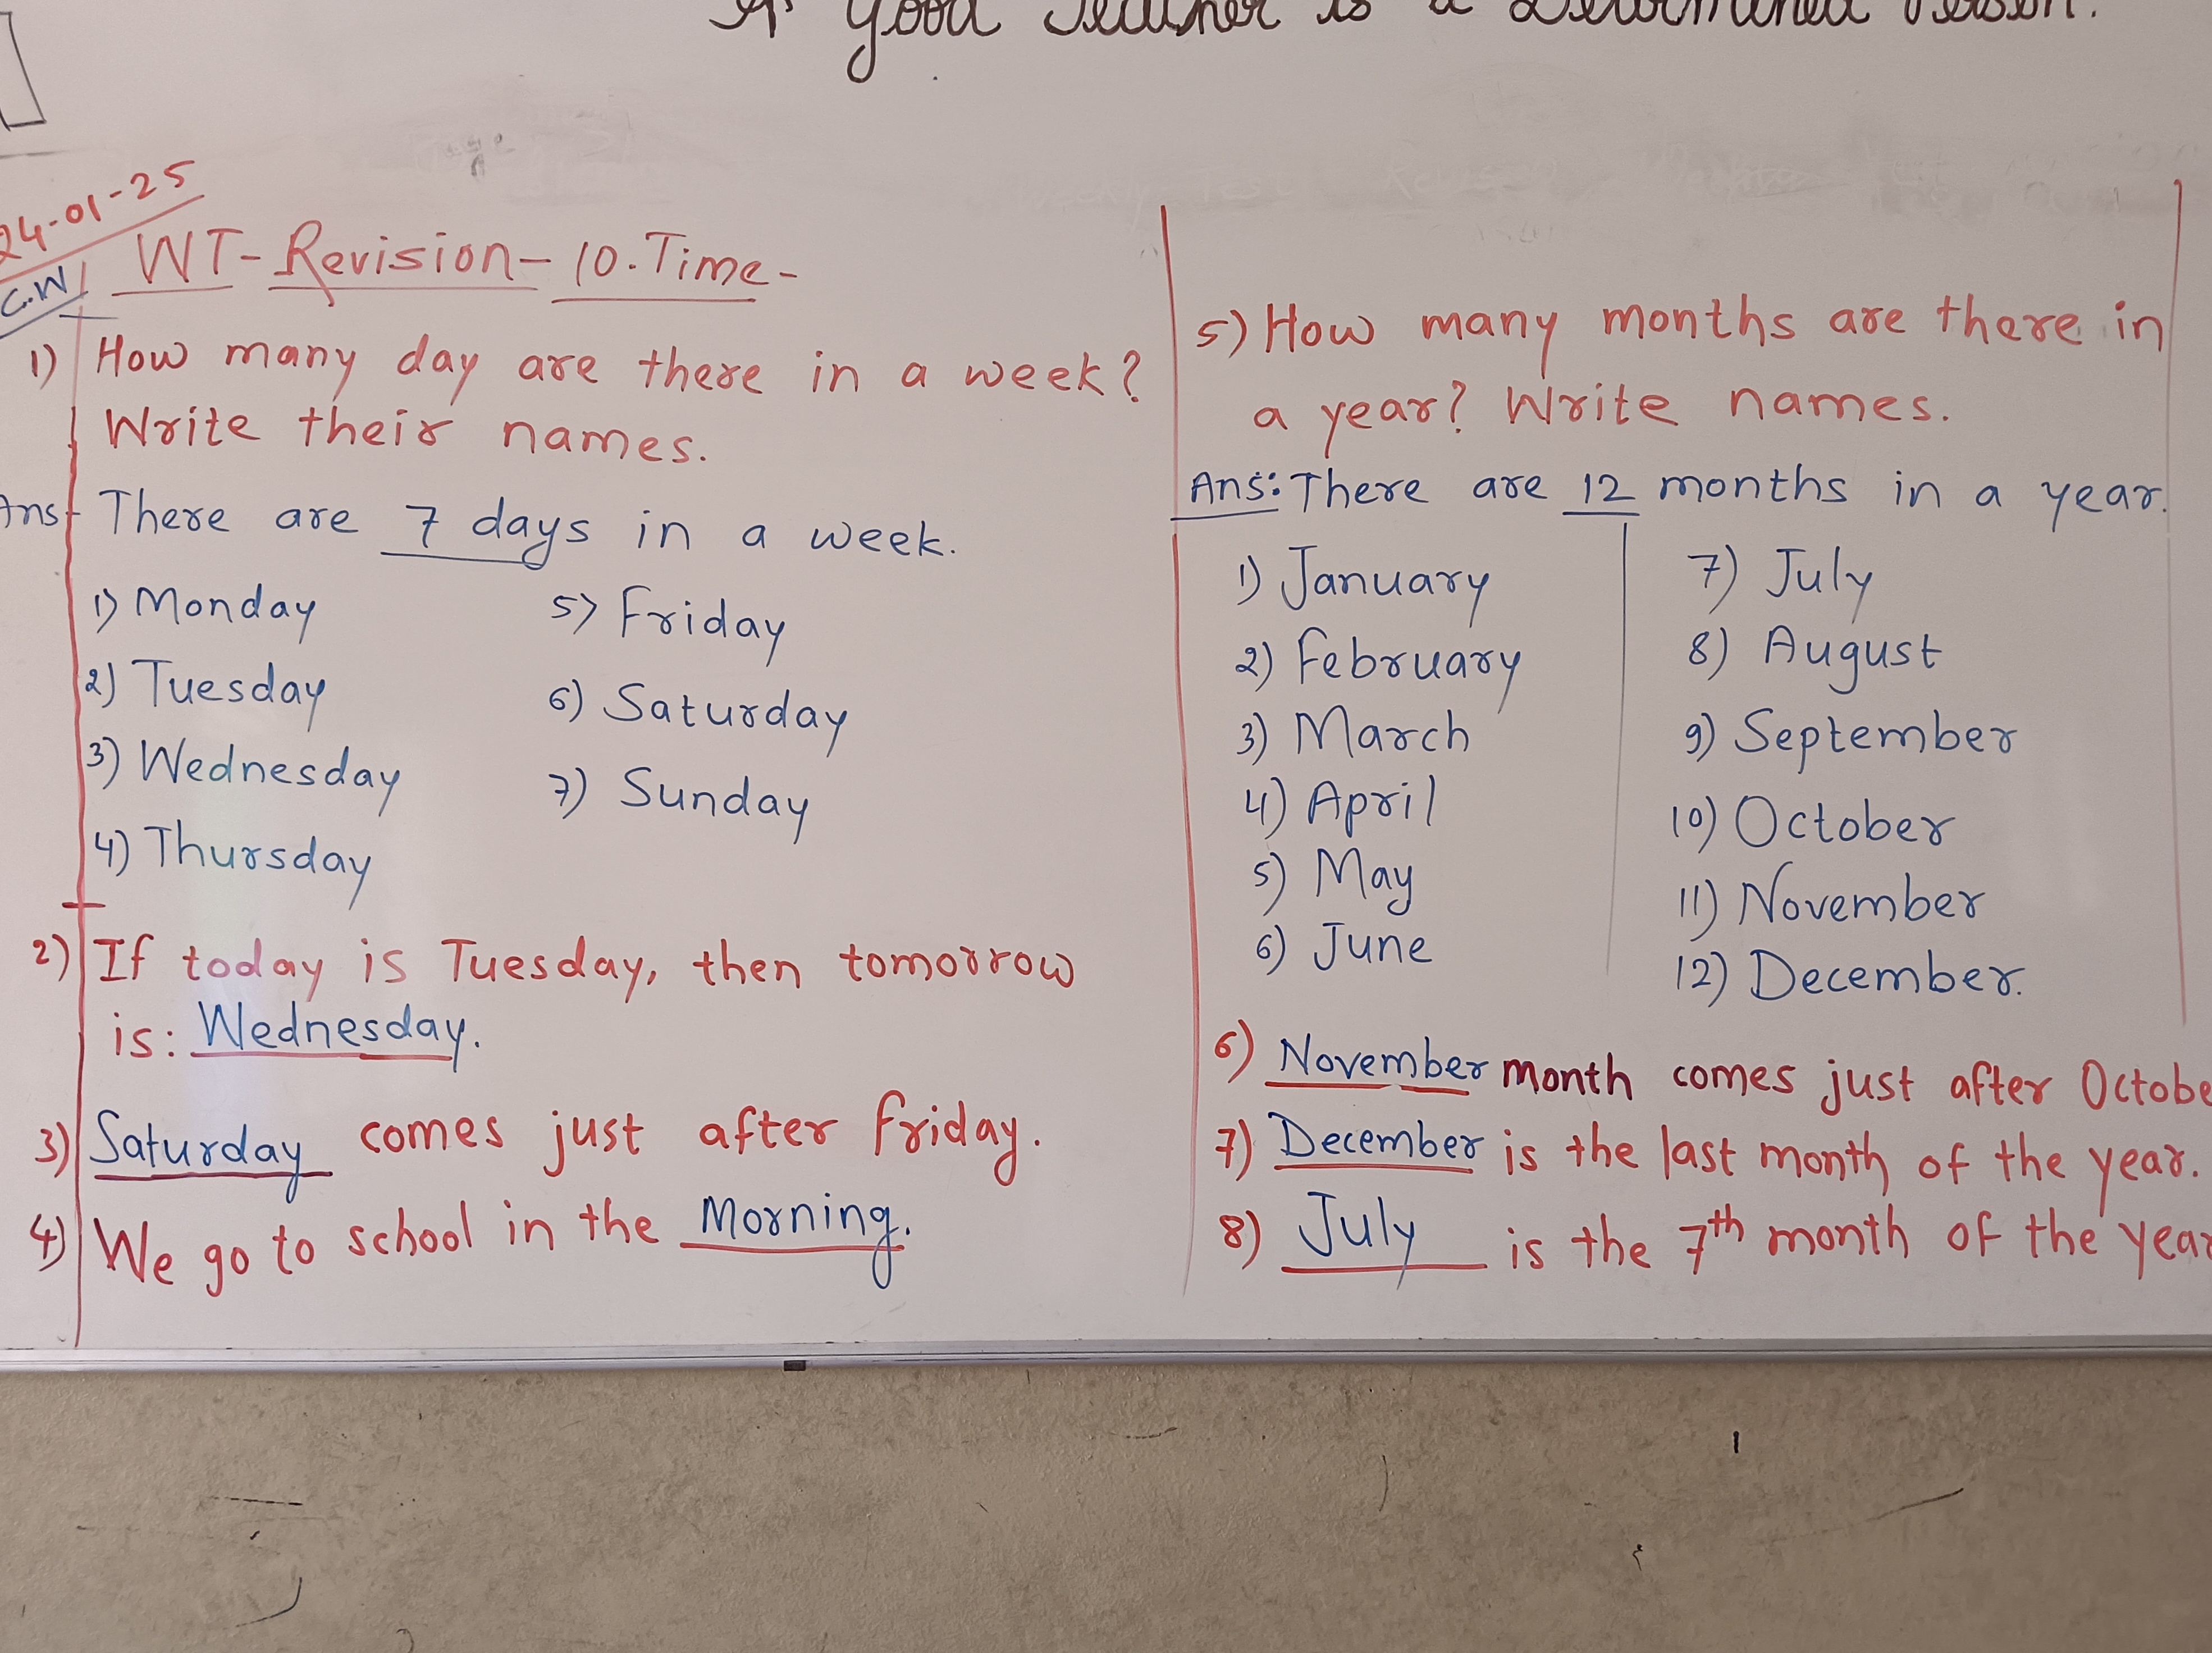 A Good Teacher is a Determined Person.
24-01-25
C.W
WT-Revision-10.Time-
1) How many day are there in a week?
Write their names.
Ans There are 7 days in a week.
1) Monday
2) Tuesday
3) Wednesday
4) Thursday
5) Friday
6) Saturday
7) Sunday
2) If today is Tuesday, then tomorrow
is: Wednesday.
3) Saturday comes just after friday.
4) We go to school in the Morning.
5) How many months are there in
a year? Write names.
Ans: There are 12 months in a year.
1) January
2) February
3) March
4) April
5) May
6) June
7) July
8) August
9) September
10) October
11) November
12) December.
6) November month comes just after Octobe
7) December is the last month of the year.
8) July is the 7th month of the year